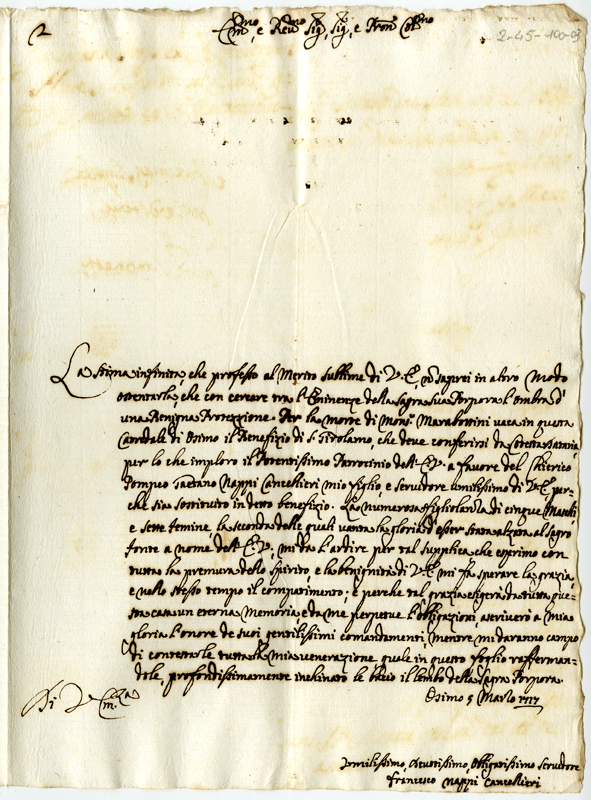 Em.mo e Rev.mo Sig.r, Sig.r, e Pron Col.mo
2-45-100-03
La stima infinita, che professo al Merito sublime di V. E. nõ saprei in altro Modo
ostentarla, che con cercare tra l'Eminenze della sagra sua Porpora l'ombra d'
una Benigna Protezzione. Per la morte di Mons.r Marabottini vaca in questa
Catedrale di Osimo il Benefizio di S. Girolamo, che deve conferirsi da
per lo che imploro il Potentissimo Patrocinio dell'E. V. a favore del Chierico
Pompeo Gaetano Nappi Cancellieri mio figlio, e servidore umilissimo di V. E. per-
che sia sostituito in detto benefizio. La numerosa figliolanza di cinque Maschi,
e sette femine, la seconda delle quali vanta la gloria d'esser stata alzata al sagro
fonte a nome dell'E. V., mi dà l'ardire per tal supplica che esprimo con
tutta la premura dello spirito, e la benignità di V. E. mi fa sperare la grazia,
e nello stesso tempo il compatimento; e perche tal grazia esigerà da tutta que-
sta casa un eterna Memoria, e da me perpetue l'obligazioni, ascriverò a mia
gloria l'onore de suoi gentilissimi comandamenti, mentre mi daranno campo
di contestarle tutta la mia venerazione quale in questo foglio rafferman-
dole, profondissimamente inchinato le bacio il lembo della Sagra Porpora.
Di V. Em.za
Osimo 5 Marzo 1717
Umilissimo, devotissimo, obligatissimo servidore
Francesco Nappi Cancellieri